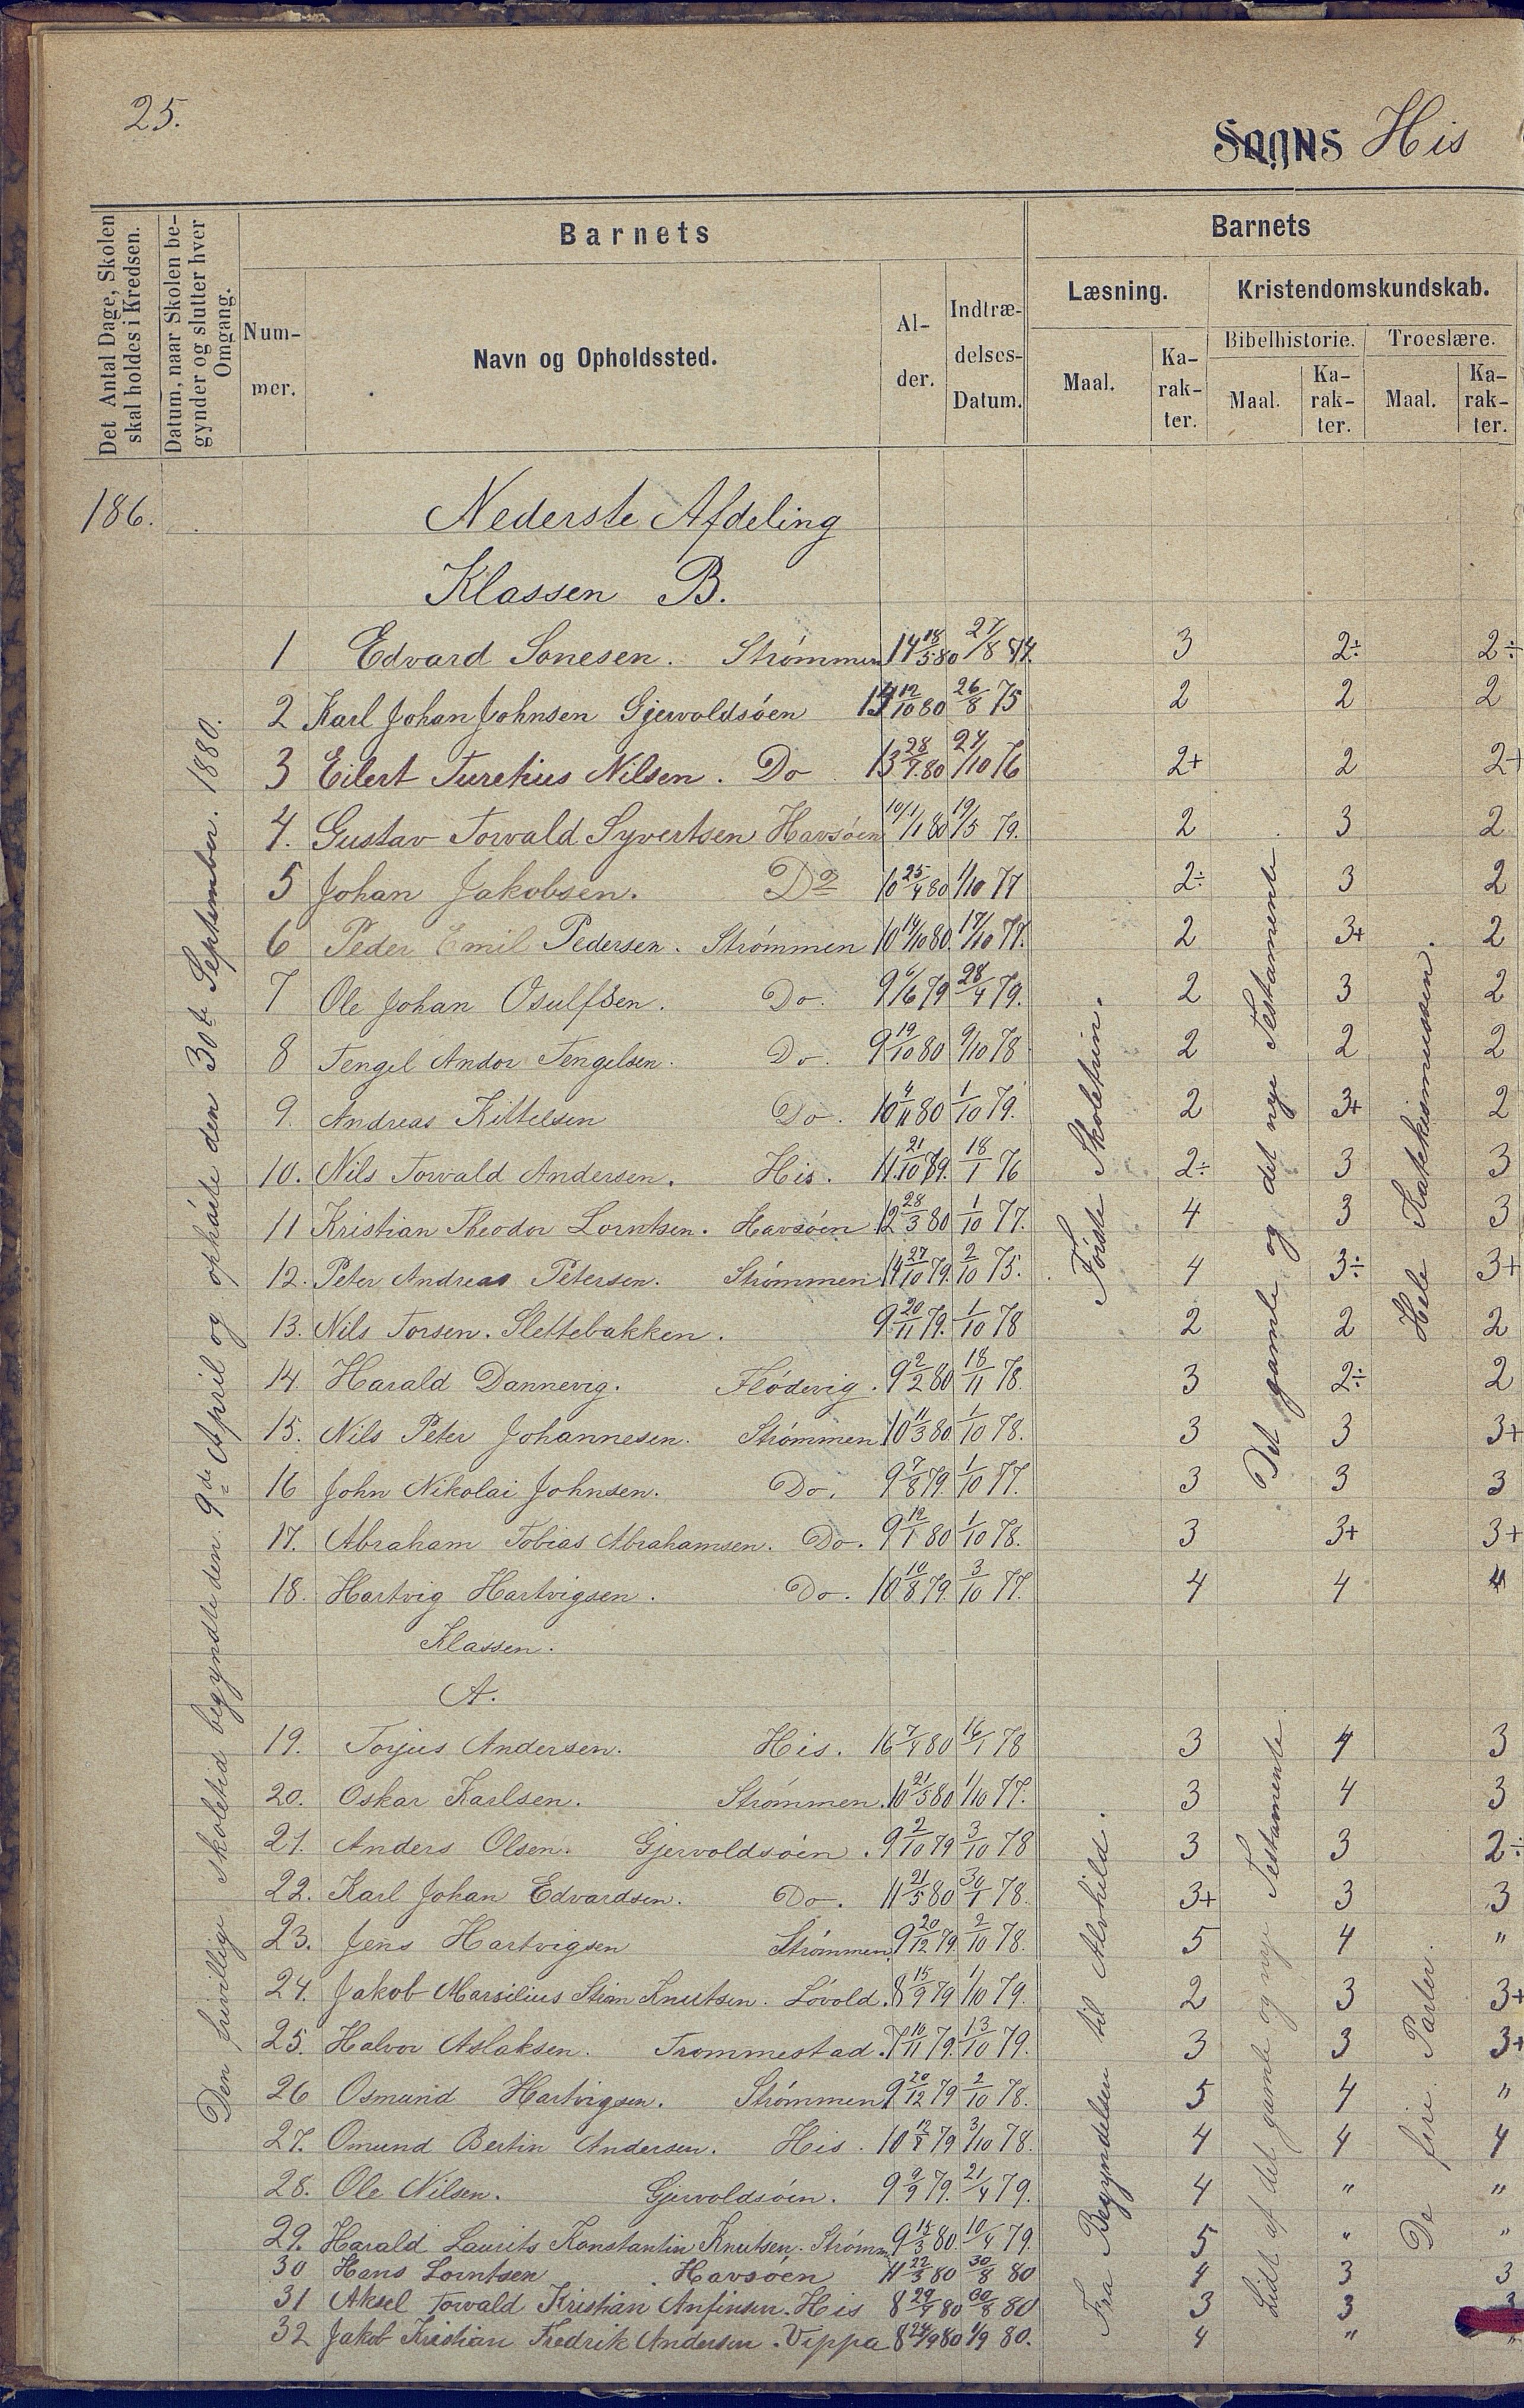 25.
Sogns His
Det Antal Dage, Skolen skal holdes i Kredsen.
Datum, naar Skolen be-gynder og slutter hver Omgang.
Barnets
Num-mer.
Navn og Opholdssted.
Al-der.
Indtræ-delses-Datum.
Barnets
Læsning.
Kristendomskundskab.
Maal.
Ka-rak-ter.
Bibelhistorie.
Troeslære.
Maal.
Ka-rak-ter.
Maal.
Ka-rak-ter.
186.
Nederste Afdeling
Klassen B.
Den frivillige skoletid begyndte den 9de April og ophørte den 30te September 1880.
Første Skoletrin.
Det gamle og det nye Testamente
Hele Katekismussen.
1 Edvard Sonesen. Strømmen 14 18/5 80 27/8 74. 3 2÷ 2÷
2 Karl Johan Johnsen Gjervoldsøen 12/10 80 26/8 75 2 2 2
3 Eilert Turetius Nilsen. Do 13 28/7 80 24/10 76 2+ 2 2+
4. Gustav Torvald Syvertsen Havsøen 10 1/1 80 19/5 79. 2 3 2
5 Johan Jakobsen. Do 10 25/4 80 1/10 77 2÷ 3 2
6 Peder Emil Pedersen. Strømmen 10 14/10 80. 17/10 77. 2 3+ 2
7 Ole Johan Osulfsen. Do. 9 6/6 79 28/4 79. 2 3 2
8 Tengel Andor Tengelsen. Do. 9 19/10 80 9/10 78 2 2 2
9. Andreas Kittelsen Do. 10 4/11 80 1/10 79. 2 3+ 2
10. Nils Torvald Andersen. His. 11 21/10 79. 18/1 76 2÷ 3 3
11 Kristian Theodor Lorntsen. Havsøen 12 28/3 80 1/10 77. 4 3 3
12. Peter Andreas Petersen. Strømmen 14 27/10 79. 2/10 75. 4 3÷ 3+
13. Nils Torsen. Slettebakken. 9 20/11 79. 1/10 78 2 2 2
14. Harald Dannevig. Flødevig. 9 2/2 80 18/11 78. 3 2÷ 2
15. Nils Peter Johannesen. Strømmen 10 11/3 80. 1/10 78. 3 3 3+
16 John Nikolai Johnsen. Do. 9 7/8 79. 1/10 77. 3 3 3
17. Abraham Tobias Abrahamsen. Do. 9 12/1 80 1/10 78. 3 3+ 3+
18. Hartvig Hartvigsen. Do. 10 10/8 79. 3/10 77. 4 4 4
Klassen.
A.
Fra Begyndelsen til Alvhild.
Lidt af det gamle og nye Testamente.
De fire Parter.
19. Torjus Andersen. His. 16 7/4 80 16/1 78 3 4 3
20. Oskar Karlsen. Strømmen. 10 21/5 80 1/10 77. 3 4 3
21. Anders Olsen. Gjervoldsøen. 9 2/10 79 3/10 78 3 3 2÷
22. Karl Johan Edvardsen. Do. 11 21/5 80 30/1 78. 3+ 3 3
23. Jens Hartvigsen Strømmen. 9 20/12 79 2/10 78. 5 4 "
24. Jakob Marsilius Stian Knutsen. Løvold. 8 15/9 79 1/10 79. 2 3 3+
25. Halvor Aslaksen. Trommestad. 7 10/11 79. 13/10 79. 3 3 3+
26 Osmund Hartvigsen. Strømmen 9 20/12 79 2/10 78. 5 4 "
27. Omund Bertin Andersen. His. 10 12/8 79 3/10 78. 4 4 4
28. Ole Nilsen. Gjervoldsøen. 9 9/9 79. 21/4 79. 4 " "
29. Harald Laurits Konstantin Knutsen. Strømm 9 15/3 80. 10/4 79. 5 " "
30 Hans Lorntsen Havsøen 11 22/3 80 30/8 80 4 3 3
31 Aksel Torvald Kristian Anfinsen. His 8 29/4 80 30/8 80 3 3 3
32 Jakob Kristian Fredrik Andersen. Vippa 8 24/9 80 1/9 80. 4 " "